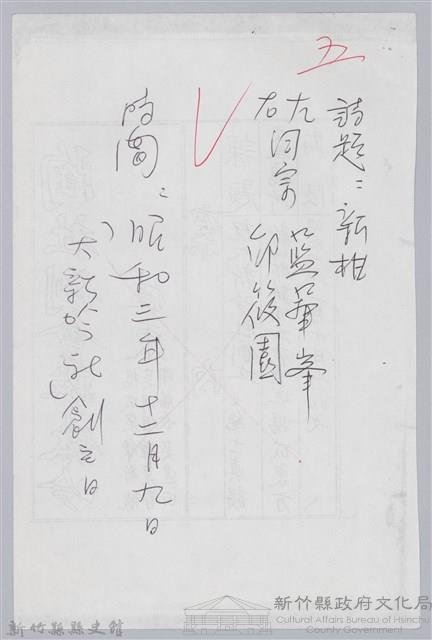 五
詩題：新柑
左詞宗 藍華峯
右 邱筱園
時間：昭和三年十二月九日
（大新吟社創立日
新竹縣縣史館
新竹縣政府文化局
Cultural Affairs Bureau of Hsinchu
County Government